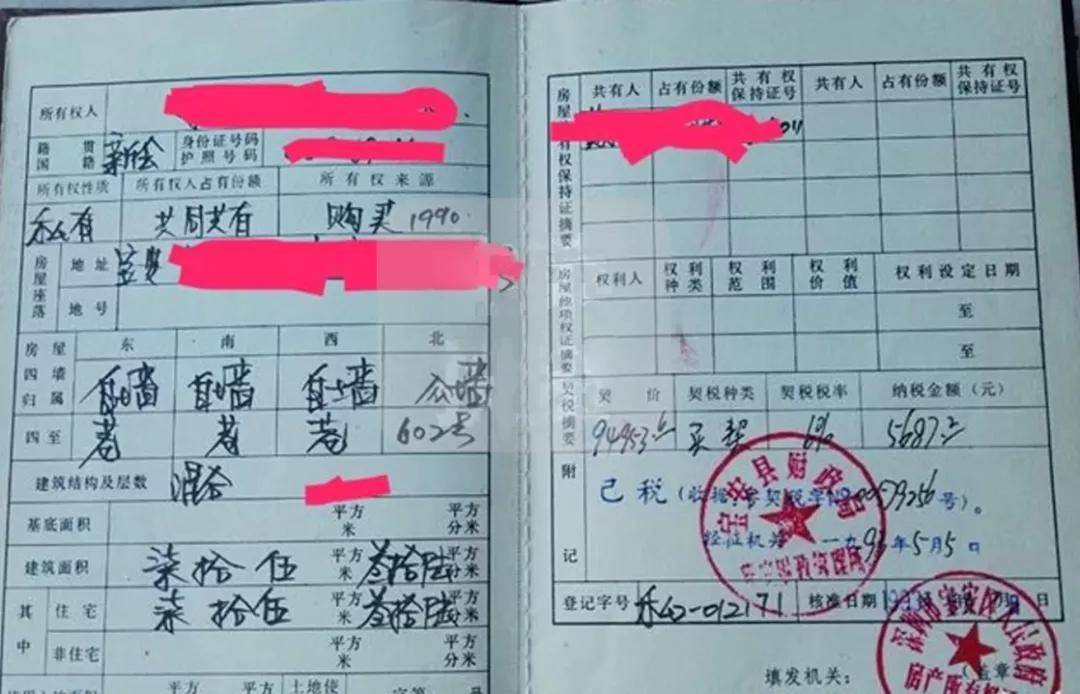 所有权人
籍贯 国籍 新会 身份证号码 护照号码
所有权性质 所有权人占有份额 所有权来源
私有 共同共有 购买 1990
房屋座落 地址 宝安
地号
房屋 东 南 西 北
四墙归属 自墙 自墙 自墙 公墙
四至 巷 巷 巷 602号
建筑结构及层数 混合
基底面积 平方米 平方分米
建筑面积 柒拾伍 平方米 叁拾陆 平方分米
其中 住宅 柒拾伍 平方米 叁拾陆 平方分米
非住宅 平方米 平方分米
平方 平方 土地使 字第 号
房屋共有权保持证摘要 共有人 占有份额 共有权保持证号 共有人 占有份额 共有权保持证号
房屋他项权证摘要 权利人 权利种类 权利范围 权利价值 权利设定日期
至
至
契税摘要 契价 契税种类 契税税率 纳税金额(元)
买契 6%
附记
已税(收据
号)。
经征机关 一九 年5月5日
宝安县财政局
登记字号 私公-012171 核准日期 日
深圳市宝安区人民政府
填发机关: 盖章